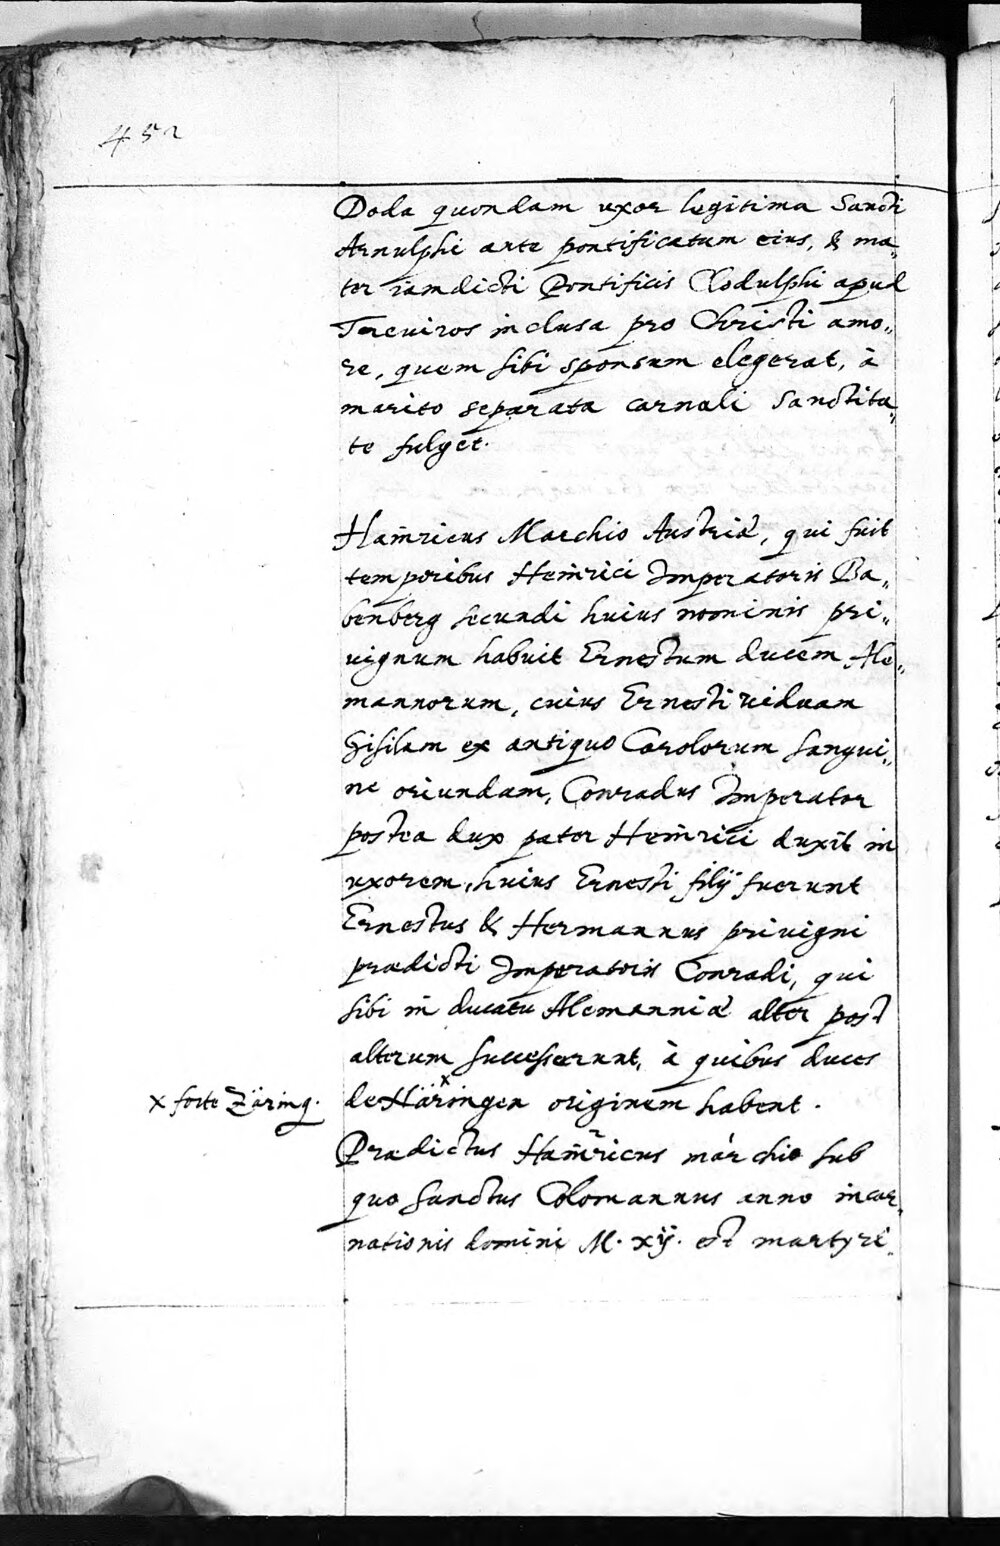 452
Doda quondam uxor legitima Sancti
Arnulphi ante pontificatum eius, & ma„
ter iamdicti Pontificis Clodulphi apud
Treuiros inclusa pro Christi amo„
re, quem sibi sponsum elegerat, à
marito separata carnali Sanctita„
te fulget.
Hainricus Marchio Austriæ, qui fuit
temporibus Heinrici Imperatoris Ba„
benberg secundi huius nominis pri„
uignum habuit Ernestum ducem Ale„
mannorum, cuius Ernesti viduam
Gisilam ex antiquo Carolorum sangui„
ne oriundam, Conradus Imperator
postea dux pater Heinrici duxit in
uxorem, huius Ernesti filij fuerunt
Ernestus & Hermannus priuigni
prædicti Imperatoris Conradi, qui
sibi in ducatu Alemanniæ alter post
alterum successerunt, à quibus duces
x forte Zäring. de Häringen originem habent.
Prædictus Hainricus marchio sub
quo sanctus Colomannus anno incar„
nationis domini M. xij. est martyri„